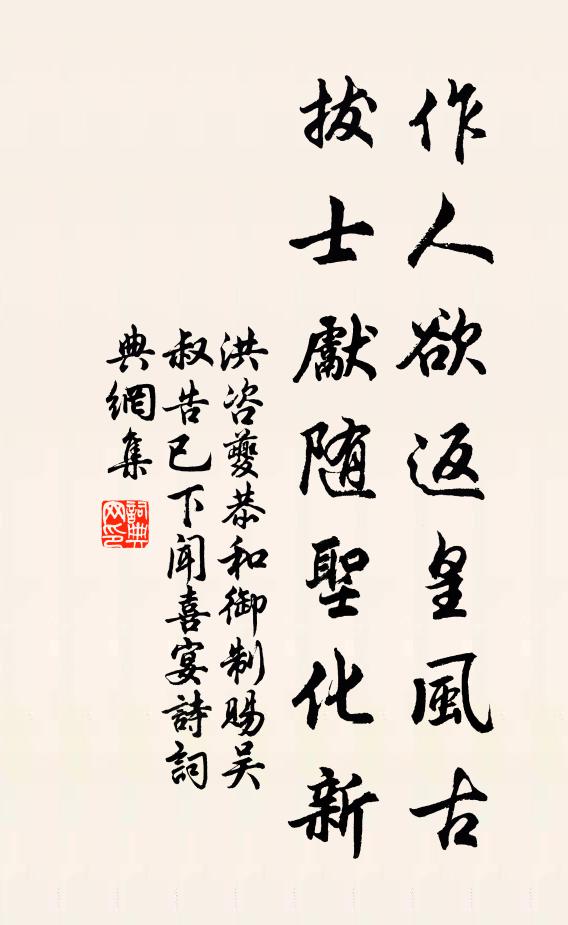 作人欲返皇風古
拔士獻随聖化新
洪咨夔恭和御制賜吴
叔告已下聞喜宴詩詞
典網集
詞典
网印